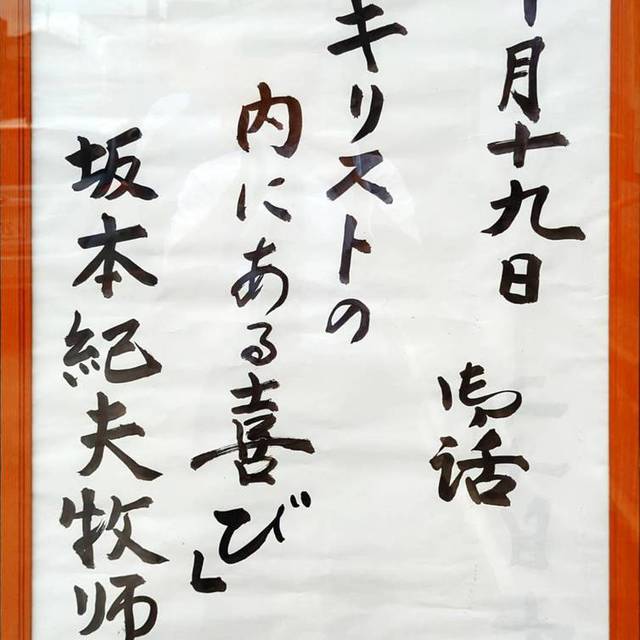 十月十九日
御話
キリストの
内にある喜び」
坂本紀夫牧師